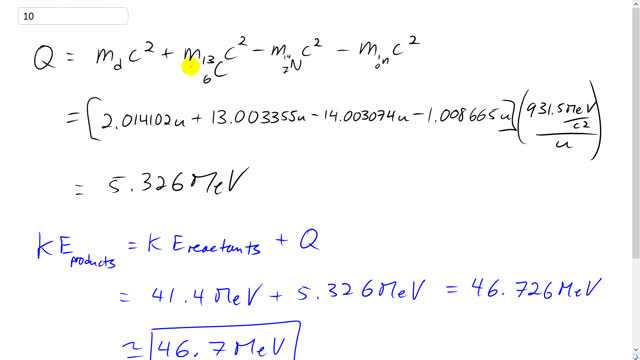 10
Q = m_d c² + m_{¹³₆C} c² − m_{¹⁴₇N} c² − m_{¹₀n} c²
= [2.014102u + 13.003355u − 14.003074u − 1.008665u] (931.5 MeV/c² / u)
= 5.326 MeV
KE_products = KE_reactants + Q
= 41.4 MeV + 5.326 MeV = 46.726 MeV
≃ 46.7 MeV